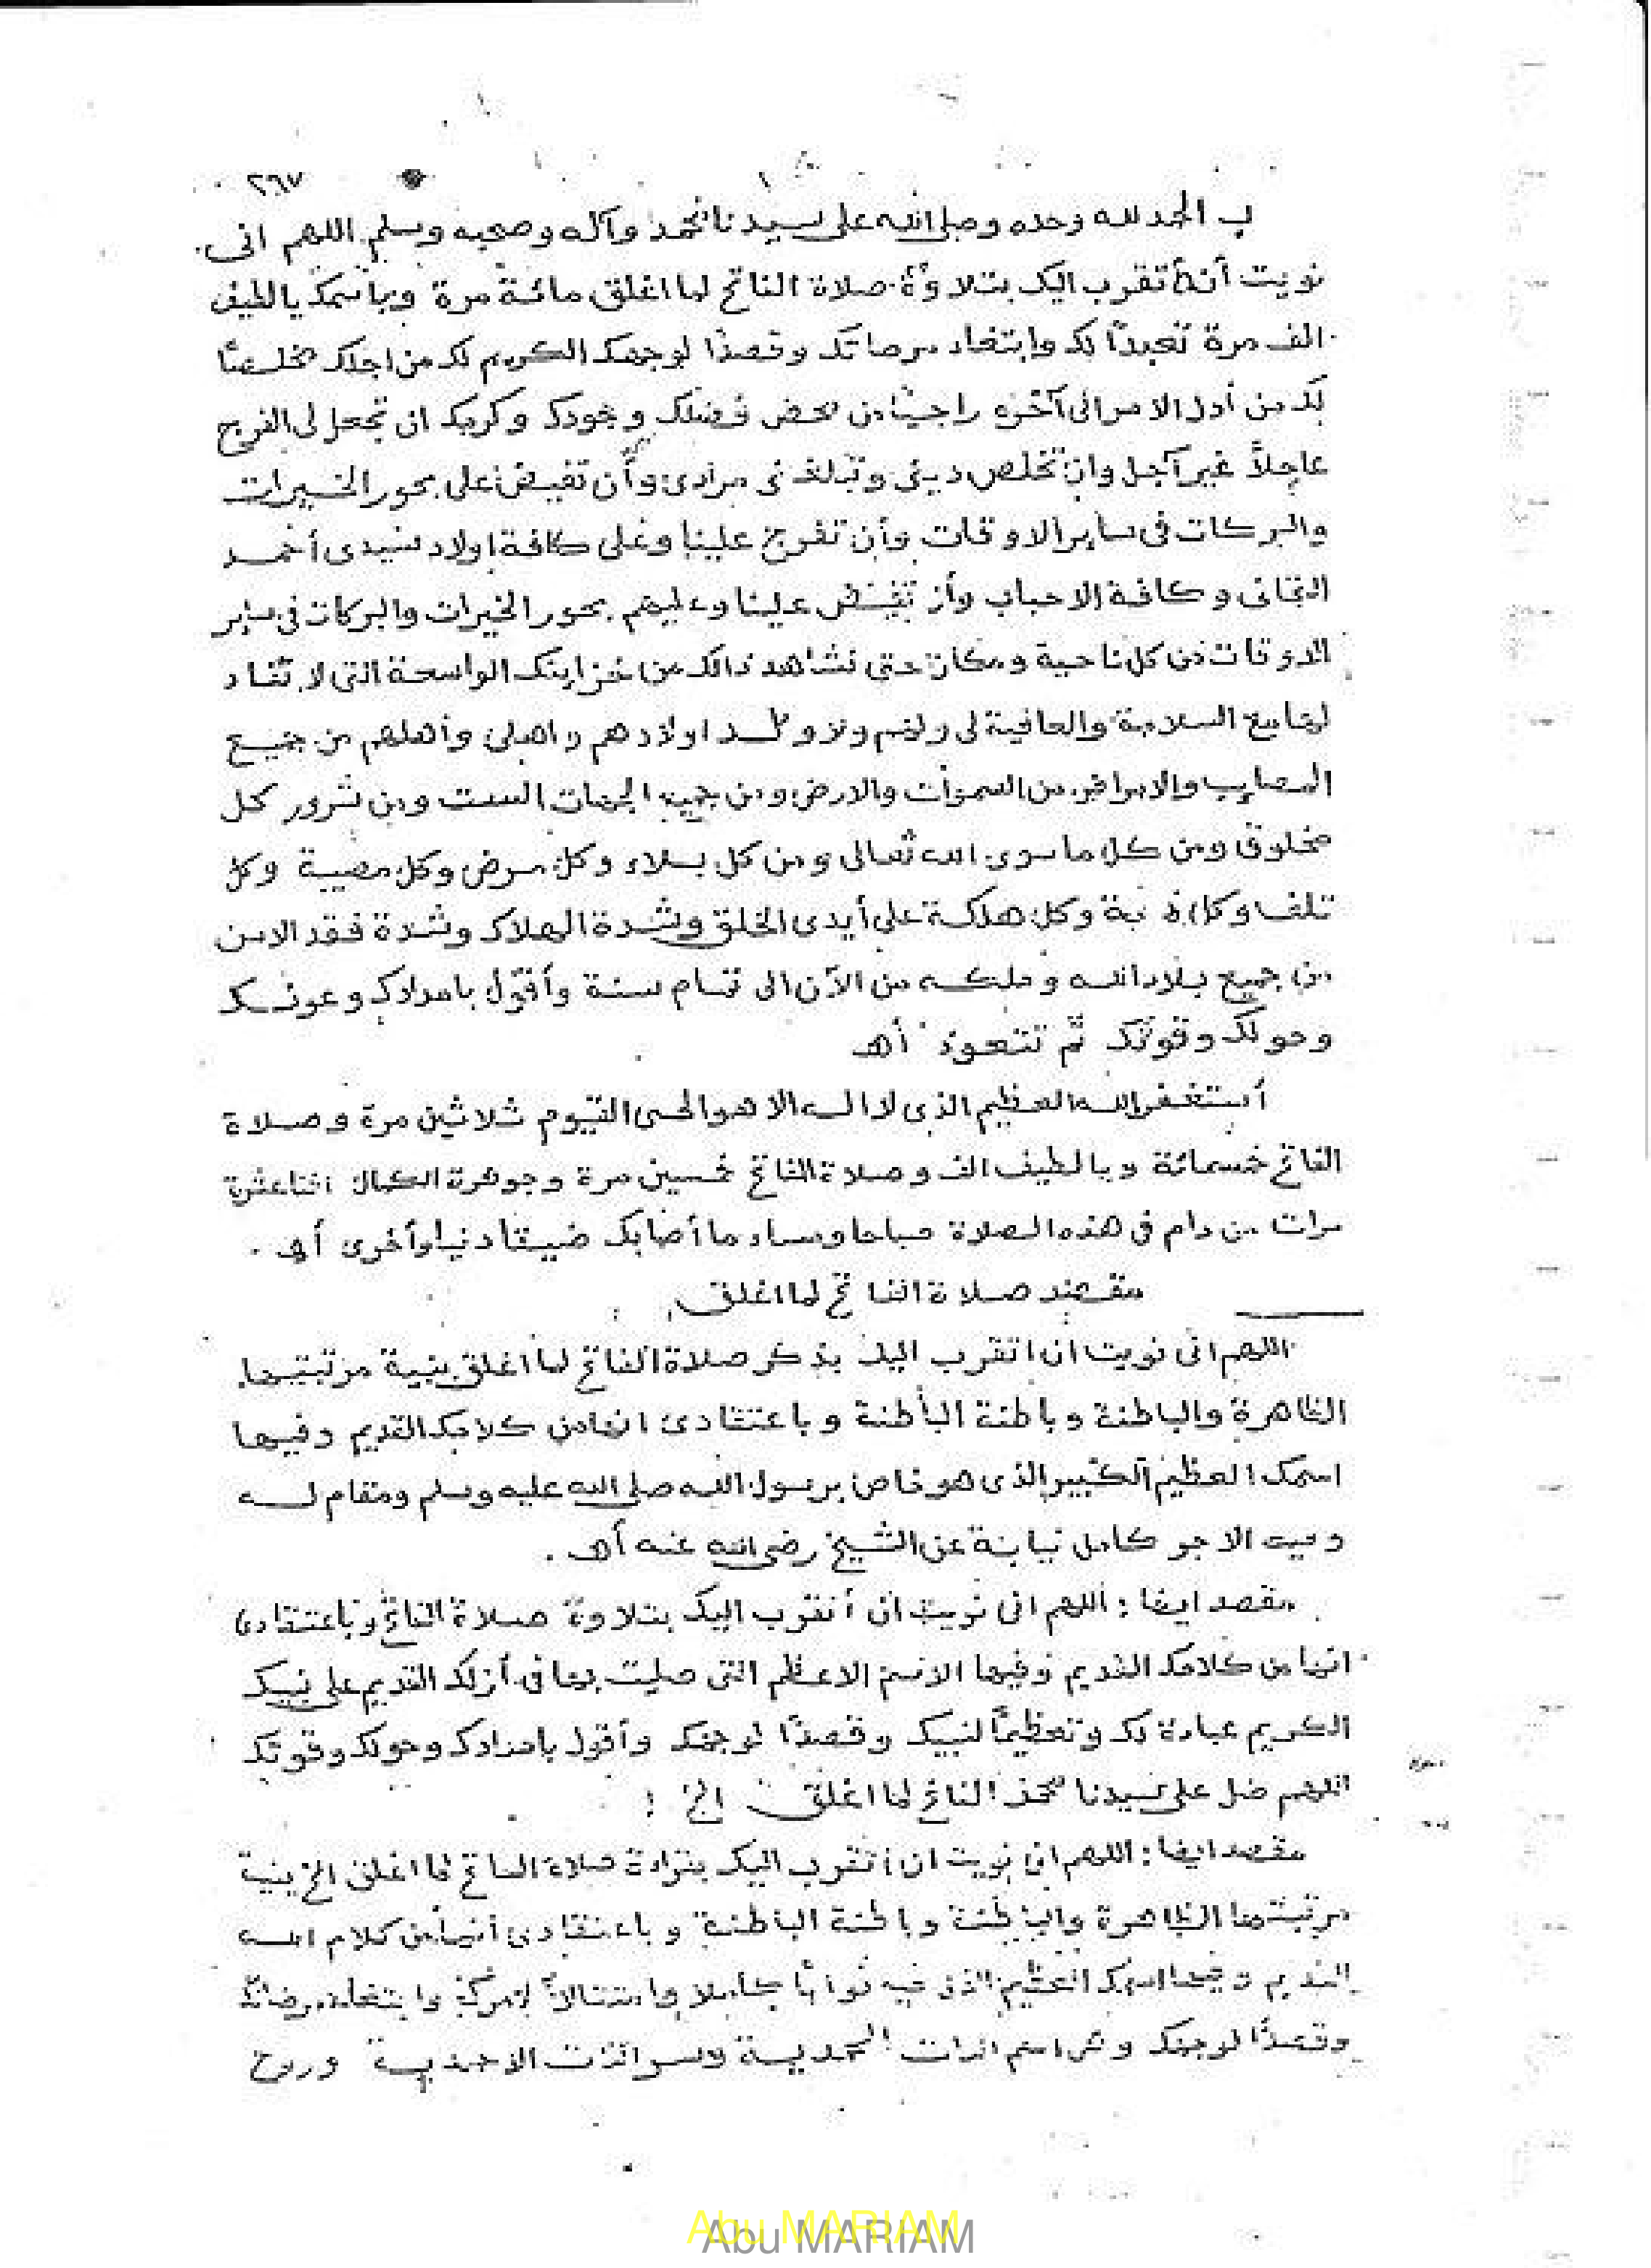 ٢٦٧
ب الحمد لله وحده وصلى الله على سيدنا محمد وآله وصحبه وسلم اللهم انى
نويت أن أتقرب اليك بتلاوة صلاة الفاتح لما اغلق مائة مرة وباسمك يا لطيف
الف مرة تعبدًا لك وابتغاء مرضاتك وقصدًا لوجهك الكريم لك من اجلك مخلصًا
لك من أول الامر الى آخره راجيًا من محض فضلك وجودك وكرمك ان تجعل لى الفرج
عاجلاً غير آجل وان تخلص دينى وتبلغنى مرادى وأن تفيض على بحور الخيرات
والبركات فى ساير الاوقات وأن تفرج علينا وعلى كافة اولاد سيدى أحمد
التجانى وكافة الاحباب وأن تفيض علينا وعليهم بحور الخيرات والبركات فى ساير
الاوقات من كل ناحية ومكان حتى نشاهد ذالك من خزاينك الواسعة التى لا تنفاد
مع السلامة والعافية لى ولهم اولادهم واهلى وأهلهم من جميع
المصايب والامراض من السموات والارض ومن جميع الجهات الست ومن شرور كل
مخلوق ومن كل ما سوى الله تعالى ومن كل بلاء وكل مرض وكل مصيبة وكل
تلف وكل وكل هلكة على أيدى الخلق وشدة الهلاك وشدة فقد الامن
من جميع بلاد الله وملكه من الآن الى تمام سنة وأقول بامدادك وعونك
وحولك وقوتك ثم تتعوذ أهـ
أستغفر الله العظيم الذى لا اله الا هو الحى القيوم ثلاثين مرة وصلاة
الفاتح خسمائة ويا لطيف الف وصلاة الفاتح خمسين مرة وجوهرة الكمال اثنا عشرة
مرات من دام فى هذه الصلاة صباحا ومساء ما أصابك ضيقا دنيا وأخرى أهـ .
مقصد صلاة الفاتح لما اغلق
اللهم انى نويت ان اتقرب اليك بذكر صلاة الفاتح لما اغلق بنية مرتبتها
الظاهرة والباطنة وباطنة الباطنة وباعتقادى انها من كلامك القديم وفيها
اسمك العظيم الكبير الذى هو خاص برسول الله صلى الله عليه وسلم ومقام له
كامل نيابة عن الشيخ رضى الله عنه أهـ .
مقصد ايضا : اللهم انى نويت ان أتقرب اليك بتلاوة صلاة الفاتح وباعتقادى
انها من كلامك القديم وفيها الاسم الاعظم التى صليت بها فى أزلك القديم على نبيك
الكريم عبادة لك وتعظيمًا لنبيك وقصدًا لوجهك وأقول بامدادك وحولك وقوتك
اللهم صل على سيدنا محمد الفاتح لما اغلق الخ :
مقصد ايضا : اللهم انى نويت ان اتقرب اليك بقراءة صلاة الفاتح لما اغلق الخ بنية
مرتبتها الظاهرة والباطنة وباطنة الباطنة وباعتقادى أنها من كلام الله
القديم وفيها اسمك العظيم الذى فيه ثوابًا كاملا وامتثالاً لامرك وابتغاء مرضاتك
وقصدًا لوجهك اسم الذات المحمدية الذات الاحمدية وروح
Abu MARIAM